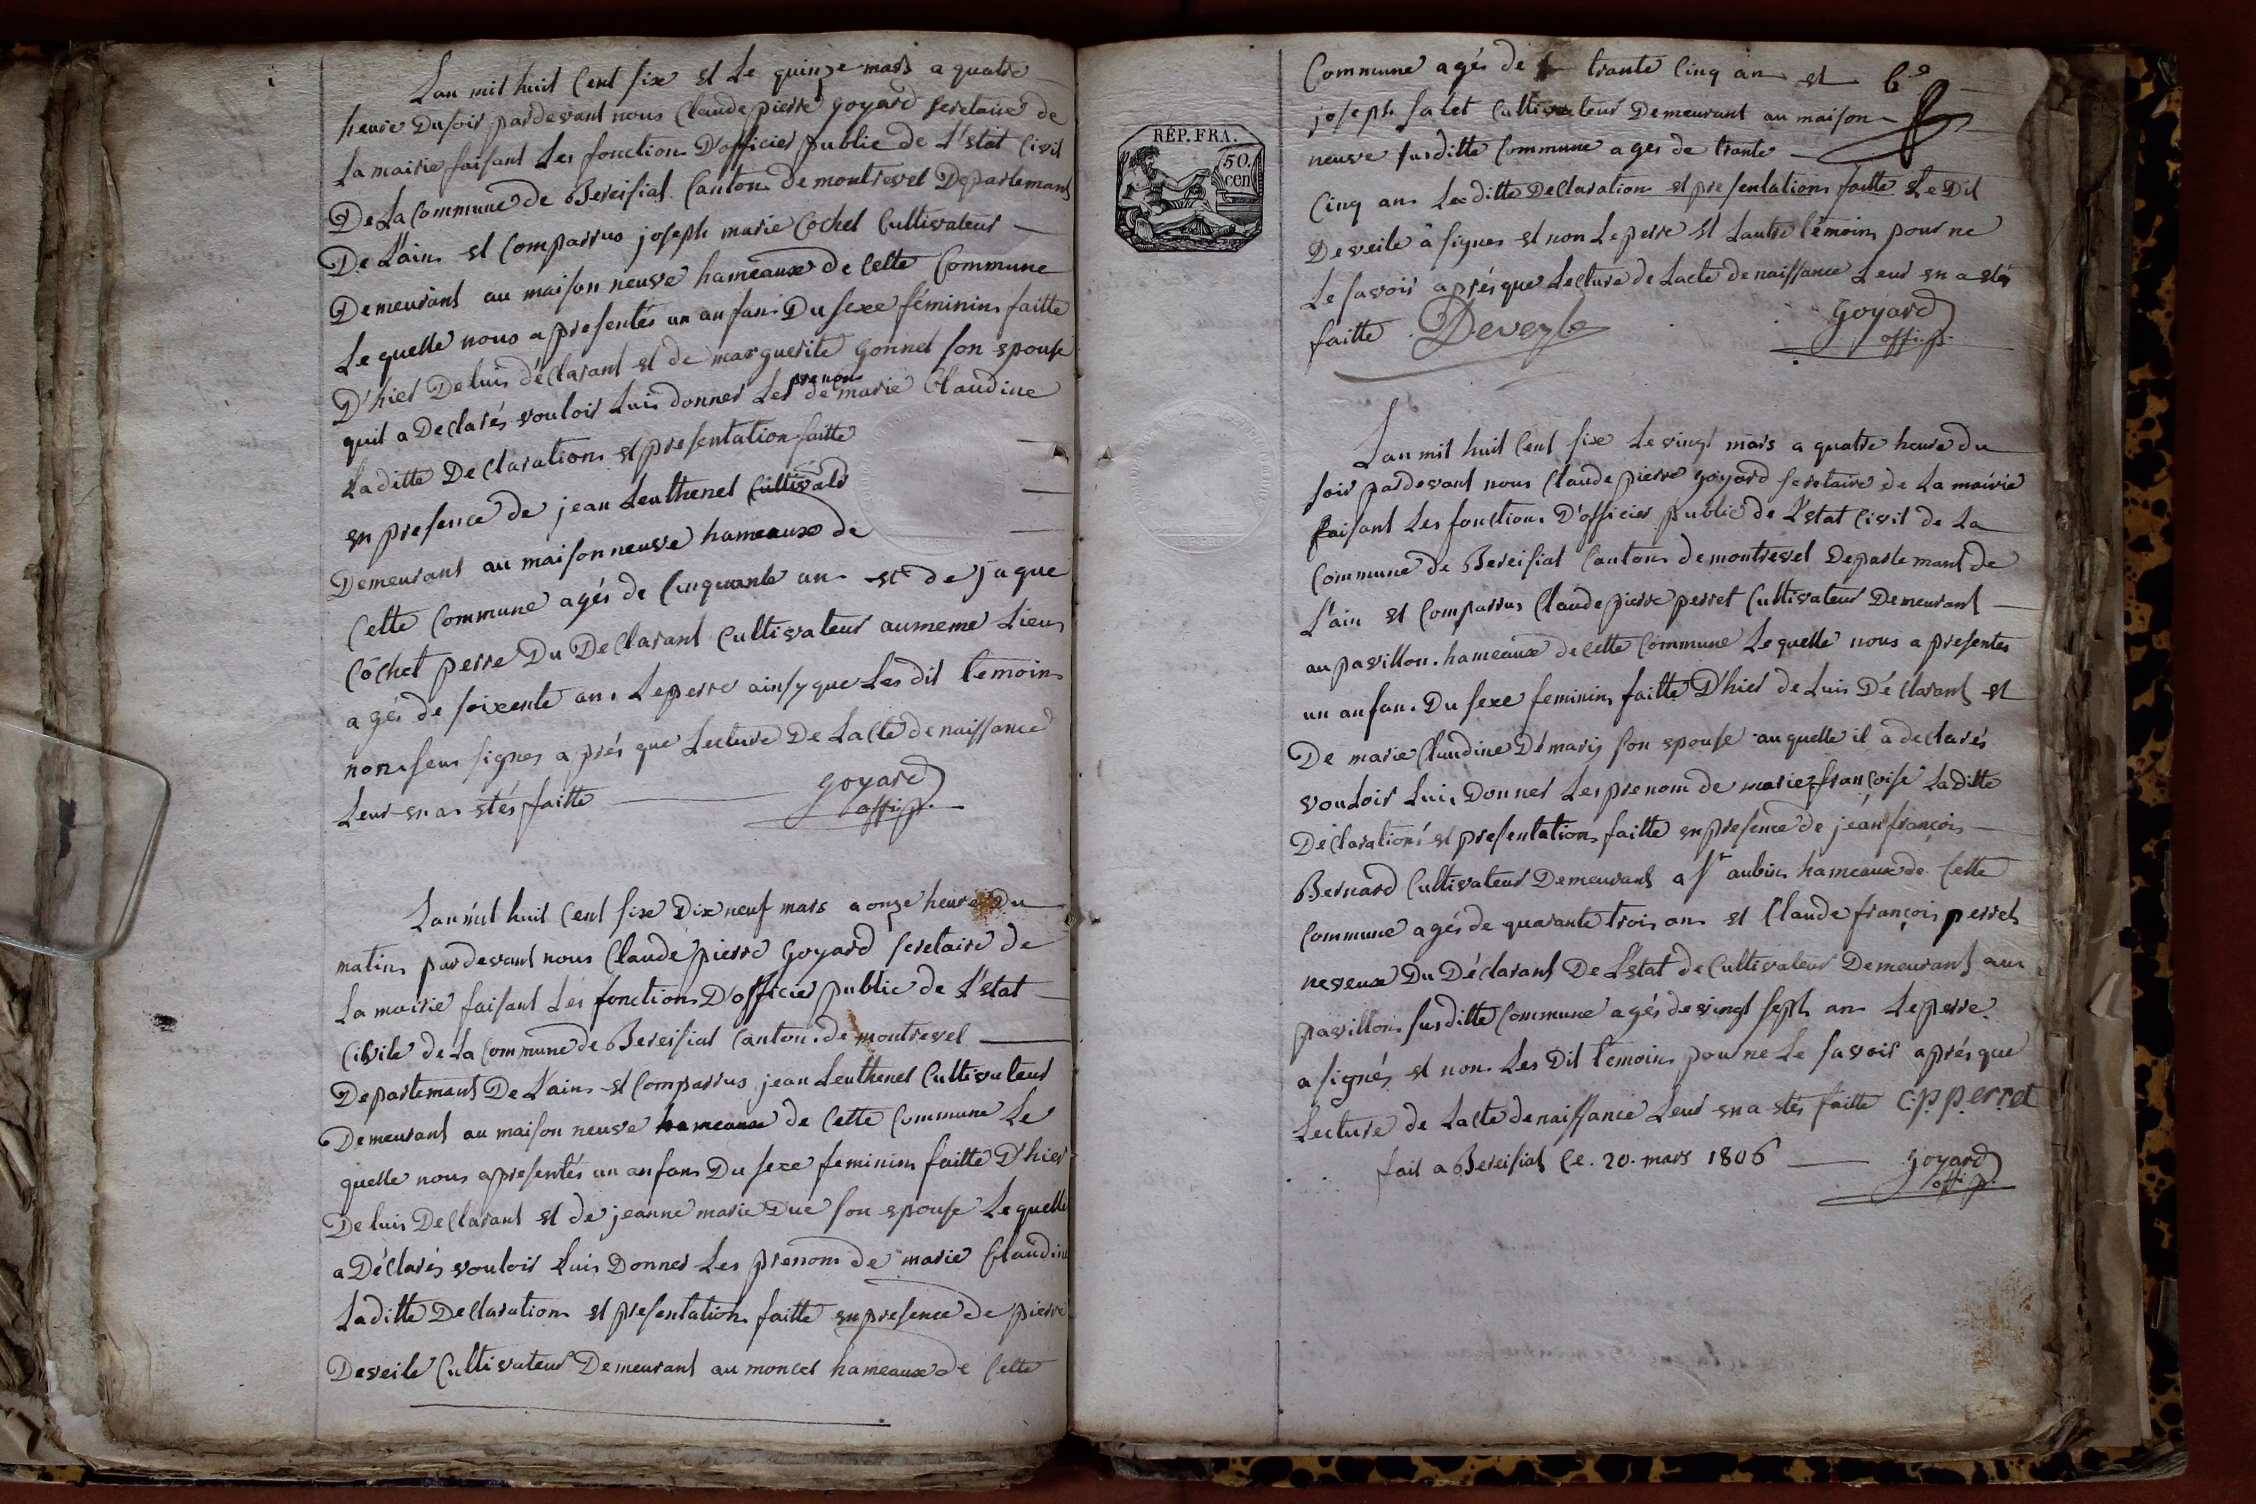 Lan mil huit Cent six et le quinze mars a quatre
heure Du soir pardevant nous Claude pierre goyard secretaire de
La mairie faisant Les fonction D'officier public de L'etat Civil
De La Commune de Bereisiat Canton de montrevel Departemant
De L'ain et Comparrus joseph marie Cochet Cultivateur
Demeurant au maison neuve hameaux de Cette Commune
Le quelle nous a presentés un anfan Du sexe féminin faitte
D'hier De luis déclarant et de marguerite gonnet son epouse
quil a Declarés vouloir Luis donner Les prenom de marie Claudine
Laditte Declaration et presentation faitte
en presence de jean Leuthenet Cultivatr
Demeurant au maison neuve hameaux de
Cette Commune agés de Cinquante an et de jaque
Cochet perre Du Declarant Cultivateur au meme Lieux
agés de soixente an. Le perre ainsy que Les dit temoin
non seus signes aprés que Lecture De Lacte de naissance
Leur en a etés faitte
goyard
offi. p.
Lan mil huit Cent six Dix neuf mars a onze heure Du
matin pardevant nous Claude pierre goyard secretaire de
La mairie faisant Les fonction D'officier public de L'etat
Civile de La Commune de Bereisiat Canton de montrevel
Departemant De L'ain et Comparrus jean Leuthenet Cultivateur
Demeurant au maison neuve hameaux de Cette Commune Le
quelle nous a presentés un anfan Du sexe feminin faitte D'hier
De luis Declarant et de jeanne marie Due son epouse Le quelle
a Déclarés vouloir Luis Donner Les prenom de marie Claudine
Laditte Declaration et presentation faitte en presence de pierre
Deveile Cultivateur Demeurant au moncet hameaux de Cette
RÉP. FRA.
50.
cen
Commune agés de trante Cinq an et
joseph salet Cultivateur Demeurant au maison
neuve susditte Commune ages de trante
Cinq an Leditte Declaration et presentation faitte Le Dit
Deveile a signes et non Le perre et Lautre témoin pour ne
Le savoir aprés que Lecture de Lacte de naissance Leur en a etés
faitte Deveyle
goyard
offi. p.
Lan mil huit Cent six Le vingt mars a quatre heure du
soir pardevant nous Claude pierre goyard secretaire de La mairie
faisant Les fonction D'officier public de L'etat Civil de La
Commune de Bereisiat Canton de montrevel Departemant de
L'ain et Comparrus Claude pierre perret Cultivateur Demeurant
au pavillon. hameaux de Cette Commune Le quelle nous a presentés
un anfan. Du sexe feminin faitte D'hier de Luis Déclarant et
De marie Claudine Démaris son epouse au quelle il a declarés
vouloir Luis Donner Les prenom de marie francoise Laditte
Déclaration et presentation faitte en presence de jean françois
Bernard Cultivateur Demeurant a St aubin hameaux de Cette
Commune agés de quarante trois an et Claude françois perret
neveux Du Déclarant De L'etat de Cultivateur Demeurant au
pavillon susditte Commune agés de vingt sept an Le perre
a signés et non Les Dit temoin pour ne Le savoir aprés que
Lecture de Lacte de naissance Leur en a etés faitte C.p perret
fait a Bereisiat Ce. 20. mars 1806
goyard
offi p.